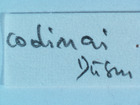 codinai
Düsm